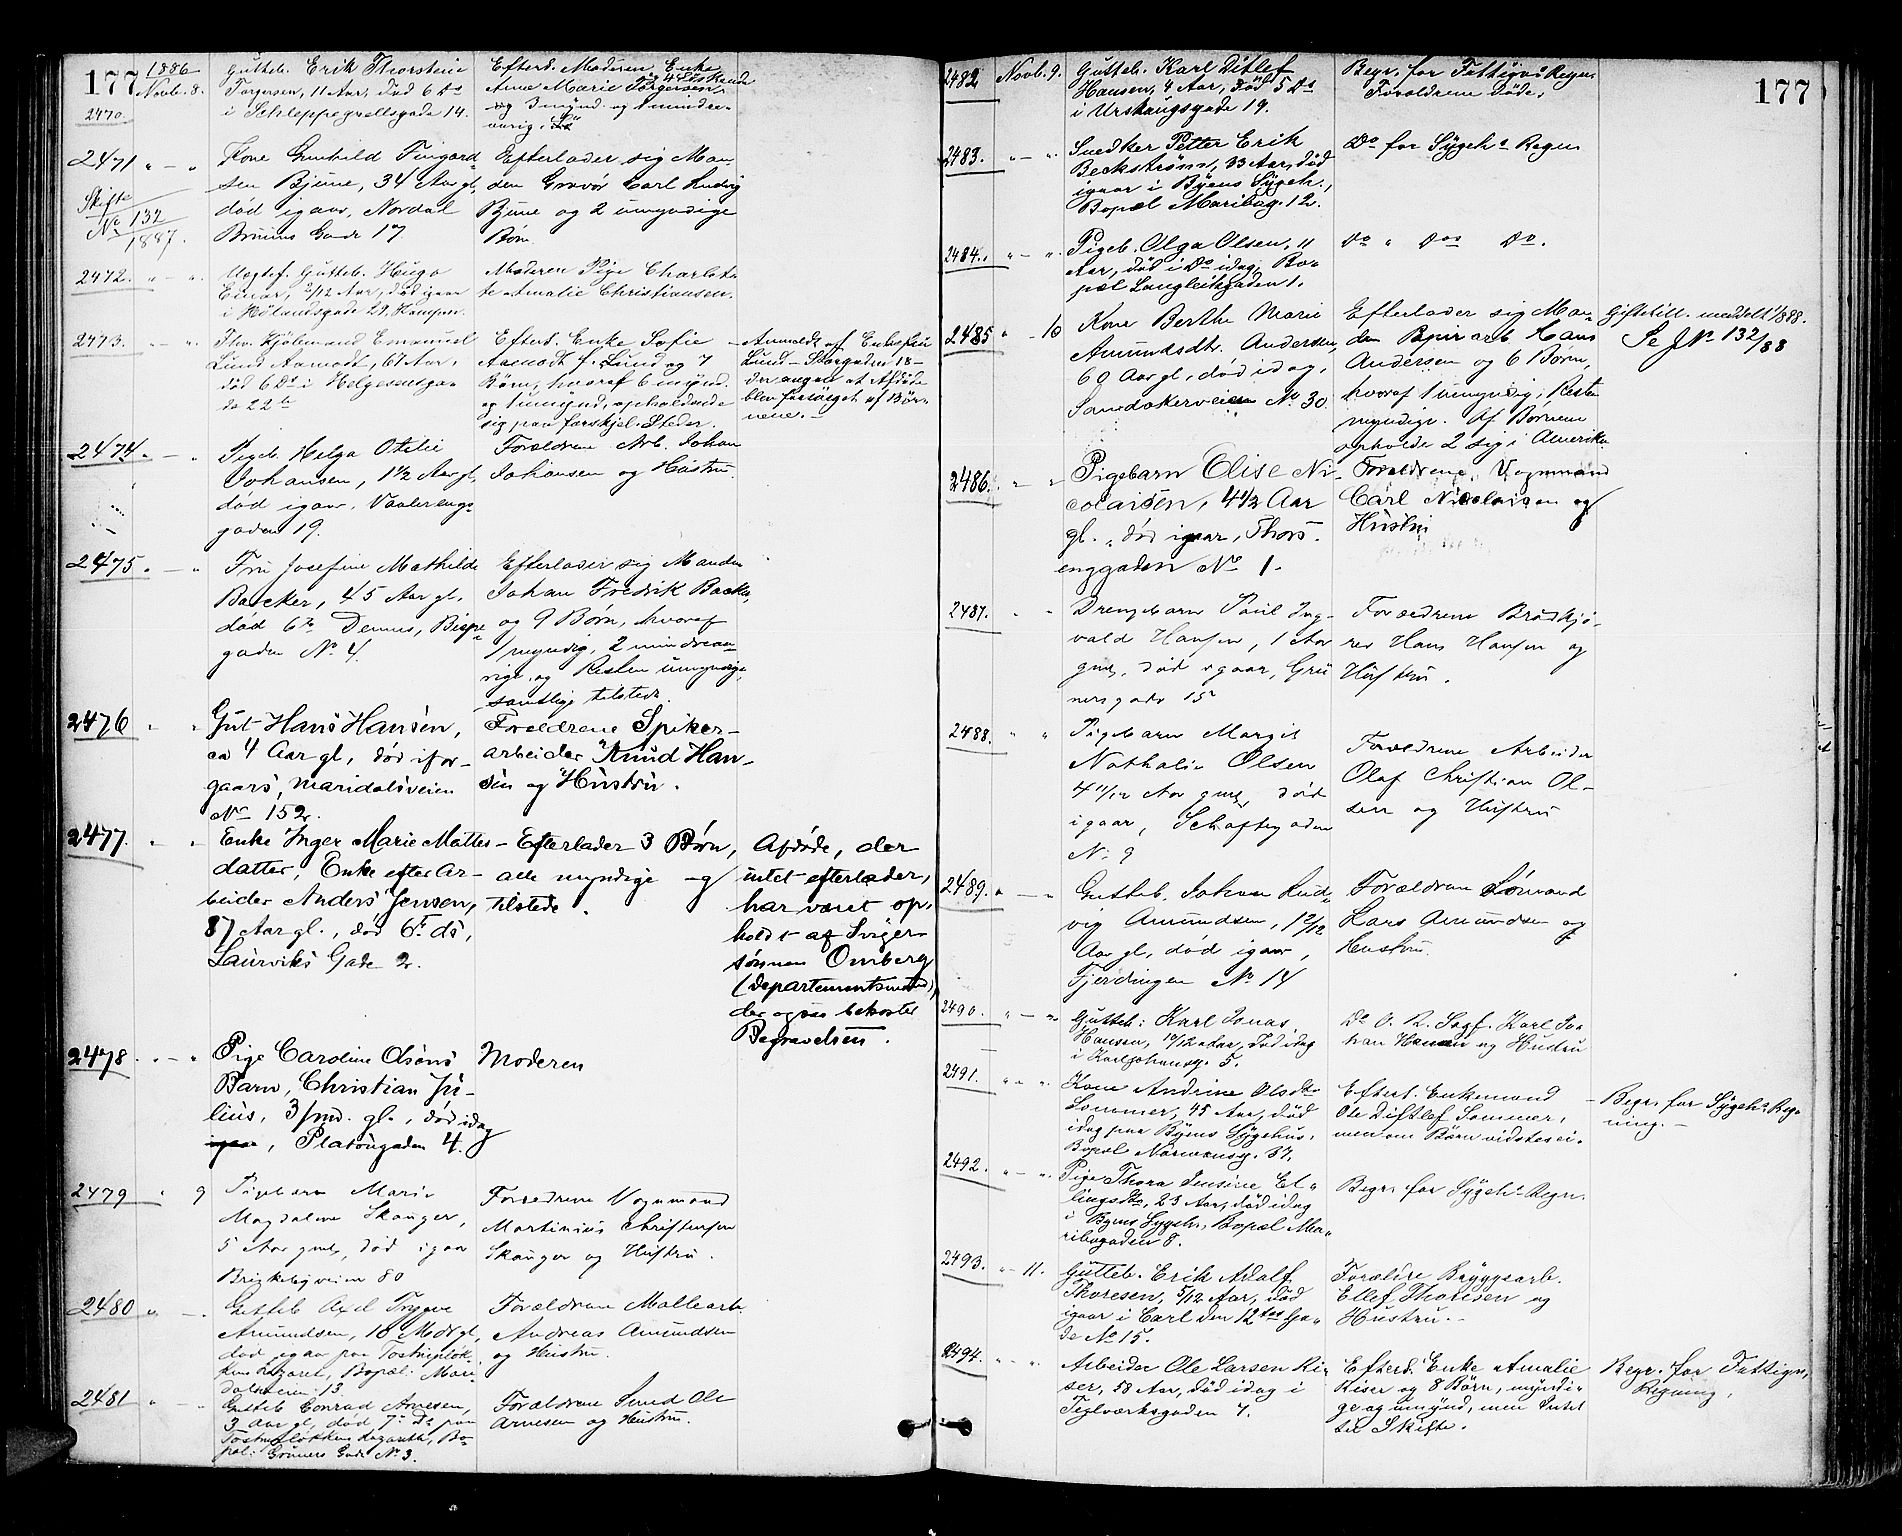 177
1886
Novb. 8.
2470.
Gutteb. Erik Thorstein
Torgersen, 11 Aar, død 6 Ds
i Schleppegrellsgade 14.
Efterl. Moderen Enke
Anna Marie Torgersen,
og 4 Søskende
og
umynd. og 1 mindre-
aarig
2471 " — "
Skifte
No 132
1887.
Kone Gunhild Fingard-
sen Bjune, 34 Aar gl.
død igaar, Nordal
Bruuns Gade 17.
Efterlader sig Man-
den Gravør Carl Ludvig
Bjune og 2 umyndige
Børn.
2472. " — "
Uægtef. Gutteb. Hugo
Einar, 2/12 Aar, død igaar
i Hølandsgade 29, Kampen.
Moderen Pige Charlot-
te Amalie Christiansen.
2473. " — "
Fhv. Kjøbmand Emanuel
Lund Aamodt, 67 Aar,
død 6 Ds i Helgesensga-
de 22 b
Efterl. Enke Sofie
Aamodt f. Lund og 7
Børn, hvoraf 6 mynd.
og 1 umynd., opholdende
sig paa forskjel. Steder.
Anmeldt af Enkefru
Lund — Storgaden 18 —
der angav at Afdøde
blev forsørget af Bør-
nene. —
2474. — "
Pigeb. Helga Otilie
Johansen, 1½ Aar gl.
død igaar, Vaalerengs-
gaden 19.
Forældrene Arb. Johan
Johansen og Hustru.
2475. — "
Fru Josefine Mathilde
Backer, 45 Aar gl.,
død 6te Dennes, Bispe-
gaden No 4.
Efterlader sig Manden
Johan Fredrik Backer,
og 9 Børn, hvoraf
1 myndig, 2 mindreaa-
rige, og Resten umyndige,
samtlige tilstede.
2476 " "
Gut Hans Hansen,
ca 4 Aar gl, død ifor-
gaars, Maridalsveien
No 152.
Forældrene Spiker-
arbeider Knud Han-
sen og Hustru.
2477. " "
Enke Inger Marie Mattes-
datter, Enke efter Ar-
beider Anders Jensen,
87 Aar gl., død 6t ds,
Laurviks Gade 2.
Efterlader 3 Børn,
alle myndige og
tilstede.
Afdøde, der
intet efterlader,
har været op-
holdt af Sviger-
sønnen Omberg
(Departementsmand),
der ogsaa bekoster
Begravelsen.
2478 " — "
Pige Caroline Olsens
Barn, Christian Ju-
lius, 3/md. gl., død idag
igaar, Platougaden 4.
Moderen
2479 " 9
Pigebarn Marie
Magdalene Skauger,
5 Aar gml, død igaar
Brinkebyveien 80
Forældrene Vognmand
Martinius Christensen
Skauger og Hustru.
2480 " — .
Gutteb Axel Trygve
Amundsen, 18 Mdr gl,
død igaar paa Tostrupløk-
kens Lazaret, Bopæl: Mari-
dalsveien 13
Forældrene Mallearb
Andreas Amundsen
og Hustru.
2481 " — "
Gutteb Conrad Arnesen,
3 Aar gl, død 7de Ds paa
Tostrupløkkens Lazareth, Bo-
pæl: Grüners Gade No 3.
Forældrene Smed Ole
Arnesen og Hustru.
2482 Novb. 9.
Gutteb. Karl Ditlef
Hansen, 4 Aar, død 5 Ds
i Urskaugsgade 19.
Begr. for Fattigvs Regn.
Forældrene døde.
177
2483. " — "
Snedker Petter Erik
Beckstrøm, 33 Aar, død
igaar i Byens Sygeh.,
Bopæl Maribog. 12.
Do for Sygehs Regn
2484. " — "
Pigeb. Olga Olsen, 11
Aar, død i Do idag, Bo-
pæl Langleiksgaden 1.
Do " Dos Do.
2485 " 10
Kone Berthe Marie
Amundsdtr. Andersen,
60 Aar gl., død idag,
Sandakerveien No 30.
Efterlader sig Man-
den Byarb Hans
Andersen og 6 Børn,
hvoraf 1 umyndig, Resten
myndige. Af Børnene
opholde 2 sig i Amerika.
Giftetill. meddelt 1/3 88.
Se J No 132/88
2486. " "
Pigebarn Elise Ni-
colaisen, 4½ Aar
gl., død igaar, Thors-
enggaden No 1.
Forældrene, Vognmand
Carl Nicolaisen og
Hustru
2487. " "
Drengebarn Paul Ing-
vald Hansen, 1 Aar
gml, død igaar, Grü
nersgade 15
Forældrene Brødkjø-
rer Hans Hansen og
Hustru.
2488. " "
Pigebarn Margit
Nathalie Olsen
4 11/12 Aar gml, død
igaar, Schaftegaden
No 9
Forældrene Arbeider
Olaf Christian Ol-
sen og Hustru
2489. " — "
Gutteb. Johan Lud-
vig Amundsen, 1 2/12
Aar gl, død igaar,
Fjerdingen No 14
Forældrene Sømand
Lars Amundsen og
Hustru.
2490. " — "
Gutteb: Karl Jonas
Hansen, 10/12 Aar, død idag
i Karljohansg. 5.
Do O. R. Sagf. Karl Jo-
han Hansen og Hustru
2491. " — "
Kone Andrine Olsdtr
Sommer, 45 Aar, død
idag paa Byens Sygehus,
Bopæl Normansg. 37.
Efterl. Enkemand
Ole Ditlef Sommer,
men om Børn vidstes ei.
— Begr. for Sygehs Reg-
ning. —
2492. " — "
Pige Thora Jensine El-
lingsdtr, 23 Aar, død idag
i Byens Sygeh., Bopæl Ma-
ribogaden 8.
Begr. for Sygehs Regn.
2493. " — 11.
Gutteb. Erik Adolf
Thoresen, 5/12 Aar, død
igaar i Carl den 12tes Ga-
de No 15.
Forældre Bryggearb.
Ellef Thoresen og
Hustru. —
2494. " — "
Arbeider Ole Larsen Ki-
ser, 58 Aar, død idag i
Teglværksgaden 7.
Efterl. Enke Amalie
Kiser og 8 Børn, myndi-
ge og umynd, men Intet
til Skifte.
Begr. for Fattigv.
Regning.